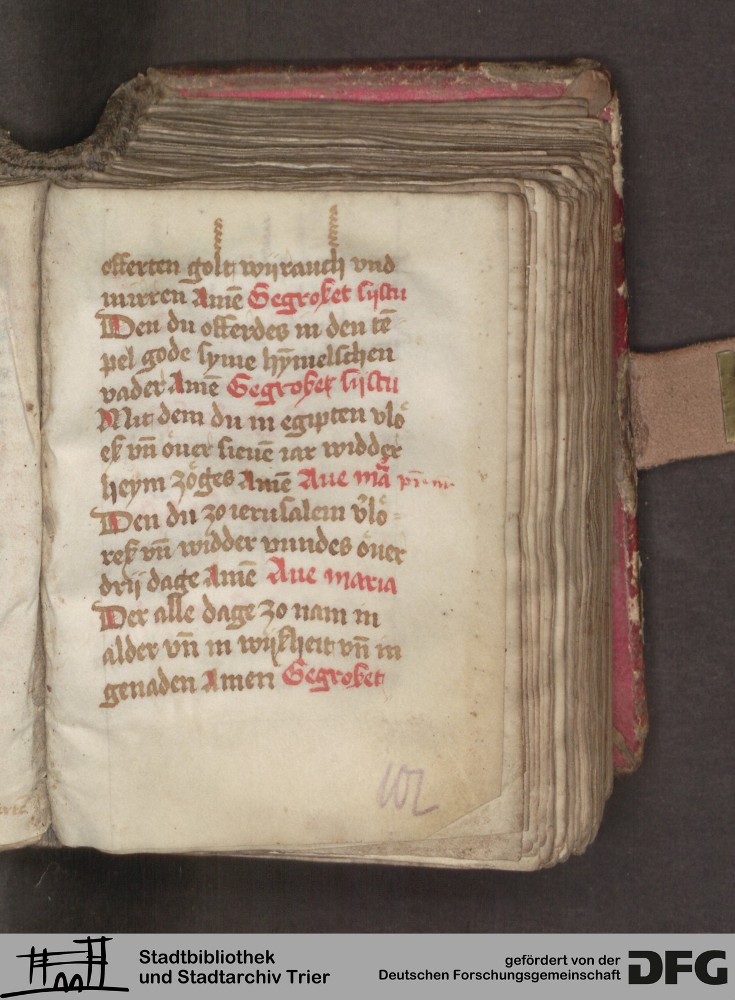 offerten golt wijrauch vnd
mirren Amē Gegroßet sijstu
Den du offerdes in den tē
pel gode syme hȳmelschen
vader Amē Gegroßet sijstu
Mit dem du in egipten vlo
eß vn̄ ouer sieuē iar widder
heym zoͤges Amē Aue mā
Den du zo ierusalem v̊lo
reß vn̄ widder vundes ouer
drij dage Amē Aue maria
Der alle dage zo nam in
alder vn̄ in wijßheit vn̄ in
genaden Amen Gegroßet
102
Stadtbibliothek
und Stadtarchiv Trier
gefördert von der
Deutschen Forschungsgemeinschaft
DFG